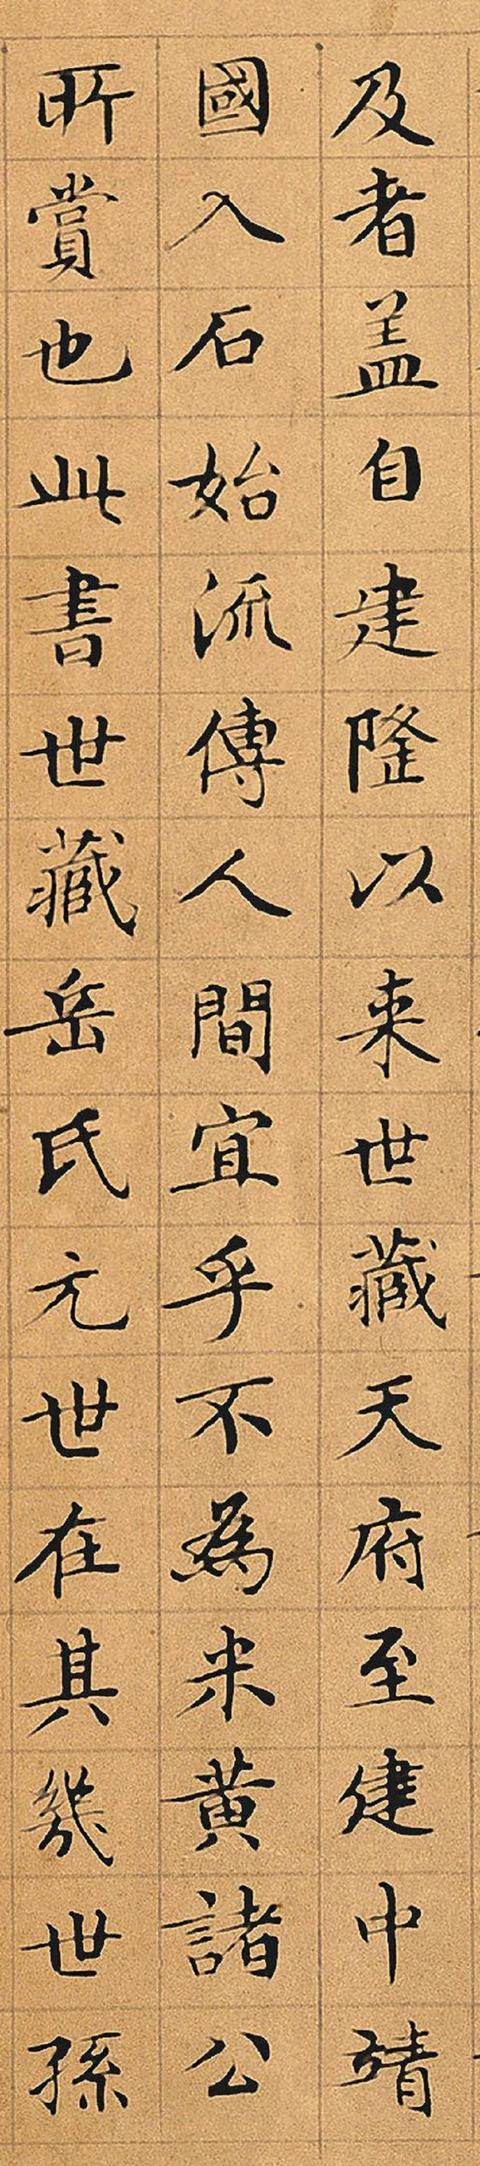 及者盖自建隆以来世藏天府至建中靖
國入石始流傳人間宜乎不為米黄諸公
所賞也此書世藏岳氏元世在其幾世孫